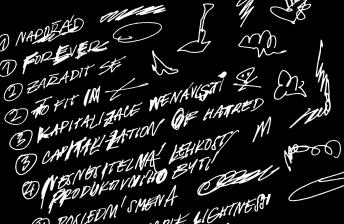 ① NAPOŘÁD
① FOREVER
② ZAŘADIT SE
② TO FIT IM
③ KAPITALIZACE NENÁVISTI
③ CAPITALIZATION OF HATRED
④ NESNESITELNÁ LEHKOST
PRODUKTIVNÍHO BYTÍ
POSLEDNÍ SMĚNA
LIGHTNESS